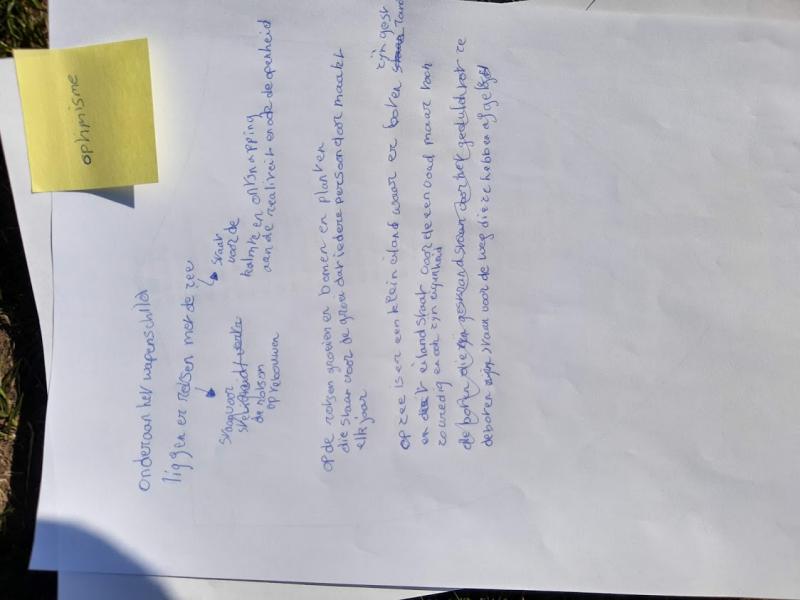 optimisme
onderaan het wapenschild
liggen er rotsen met de zee
staan voor
de rotsen
op te bouwen
staat
voor de
kalmte en ontsnapping
aan de realiteit en ook de openheid
op de rotsen groeien er bomen en planten
die staat voor de groei dat iedere persoon door maakt
elk jaar
op zee is er een klein eiland waar er boten zijn gest
en dit eiland staat voor de eenvoud maar toch
zo wredig en ook zijn eigenheid
de boten die gestrand staan voor het geduld tot ze
de boten staan voor de weg die ze hebben afgelegd